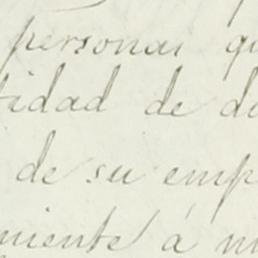 personas qu
tidad de d
de su emp
niente á m